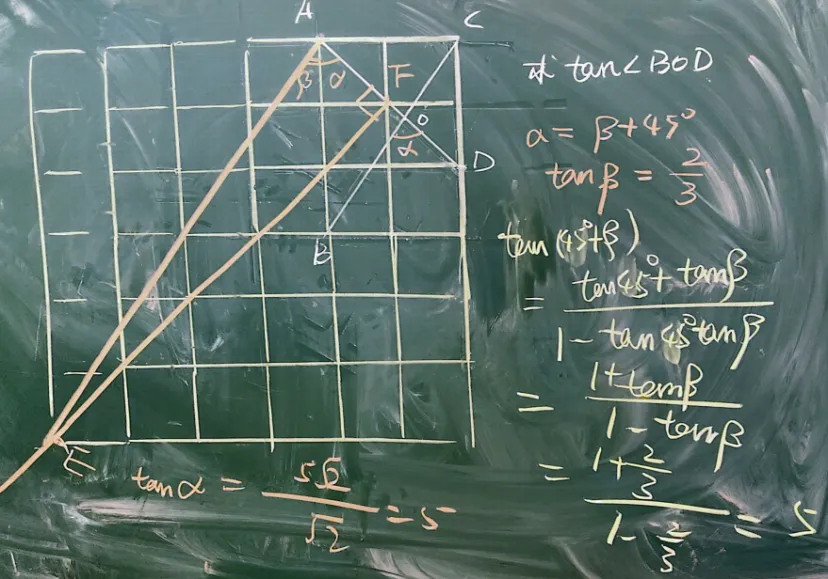 A C
β α F
O
α
D
B
E
求 tan∠BOD
a = β+45°
tanβ = 2/3
tan(45°+β)
= (tan45°+tanβ)/(1-tan45°tanβ)
= (1+tanβ)/(1-tanβ)
= (1+2/3)/(1-2/3) = 5
tanα = 5√2/√2 = 5